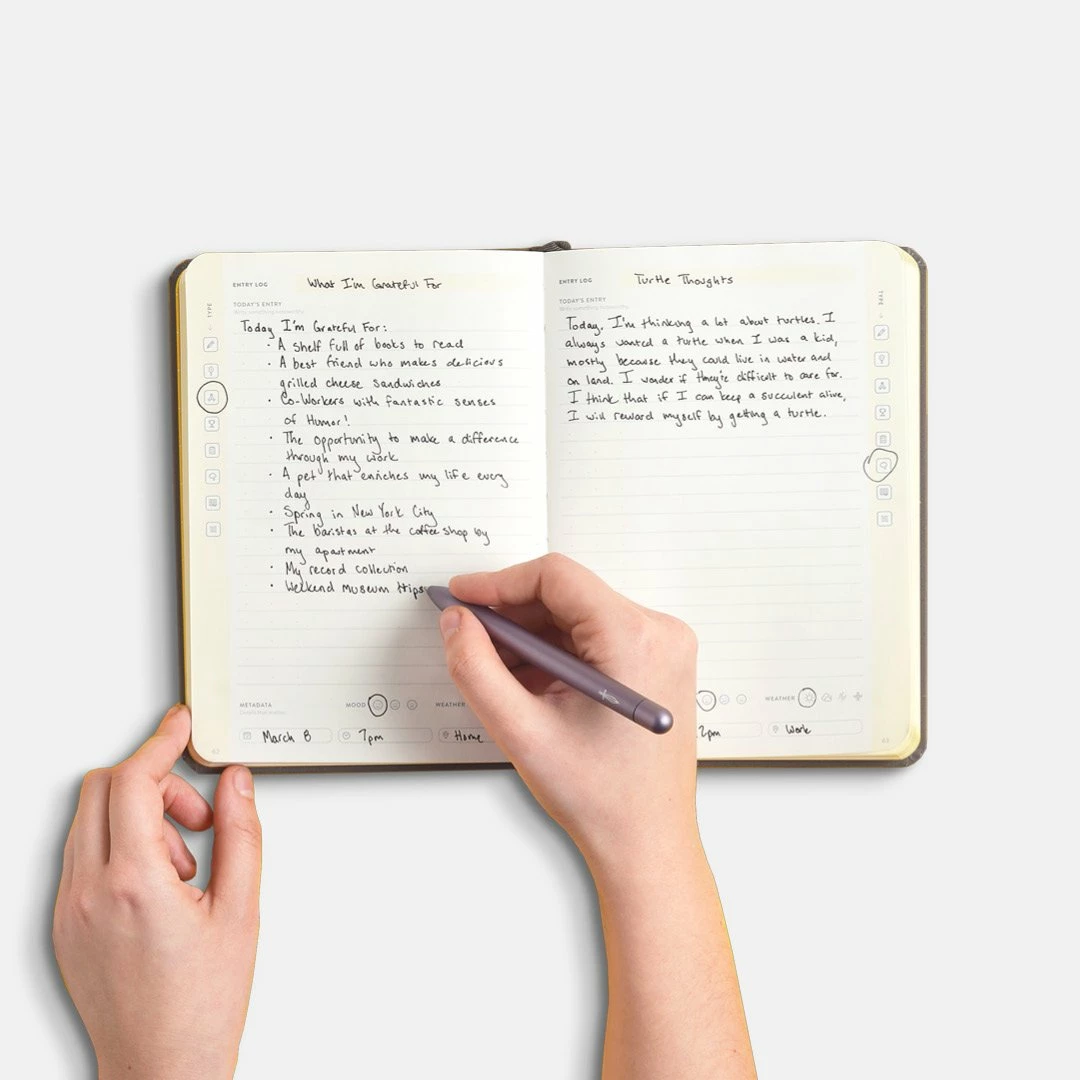 ENTRY LOG
What I'm Grateful For
TODAY'S ENTRY
TYPE
Today I'm Grateful For:
· A shelf full of books to read
· A best friend who makes delicious
grilled cheese sandwiches
· Co-Workers with fantastic senses
of Humor!
· The opportunity to make a difference
through my work
· A pet that enriches my life every
day
· Spring in New York City
· The baristas at the coffee shop by
my apartment
· My record collection
· Weekend museum trips
METADATA
MOOD
WEATHER
March 8
7pm
Home
62
ENTRY LOG
Turtle Thoughts
TODAY'S ENTRY
TYPE
Today, I'm thinking a lot about turtles. I
always wanted a turtle when I was a kid,
mostly because they could live in water and
on land. I wonder if they're difficult to care for.
I think that if I can keep a succulent alive,
I will reward myself by getting a turtle.
WEATHER
2pm
Work
63